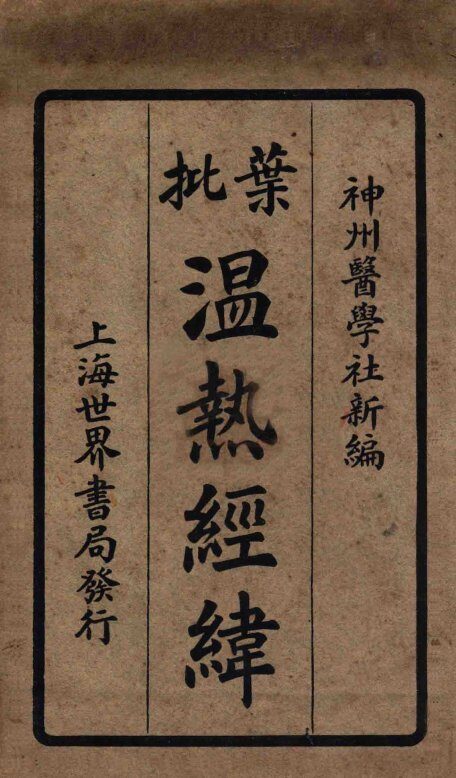 神州醫學社新編
葉批
温熱經緯
上海世界書局發行